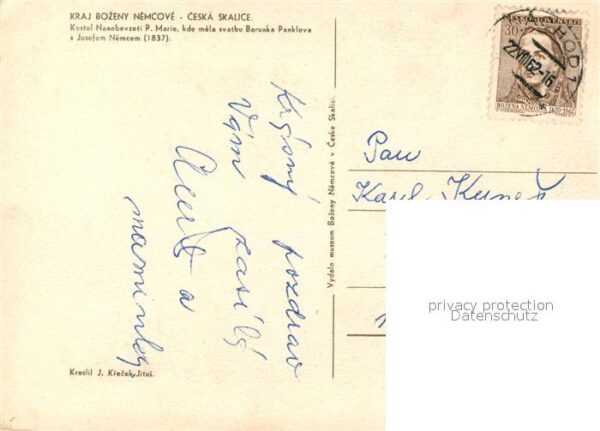 KRAJ BOŽENY NĚMCOVÉ - ČESKÁ SKALICE.
Kostel Nanebevzetí P. Marie, kde měla svatbu Barunka Panklova
s Josefem Němcem (1837).
Krásný pozdrav
Vám zasílá
a
maminka
Kreslil J. Křeček-Jituš.
Vydalo museum Boženy Němcové v České Skalici
ČESKOSLOVENSKO
30
BOŽENA NĚMCOVÁ 1820-1862
NÁCHOD 1
22.VIII.62-16
Pan
Karel Kuneš
privacy protection
Datenschutz